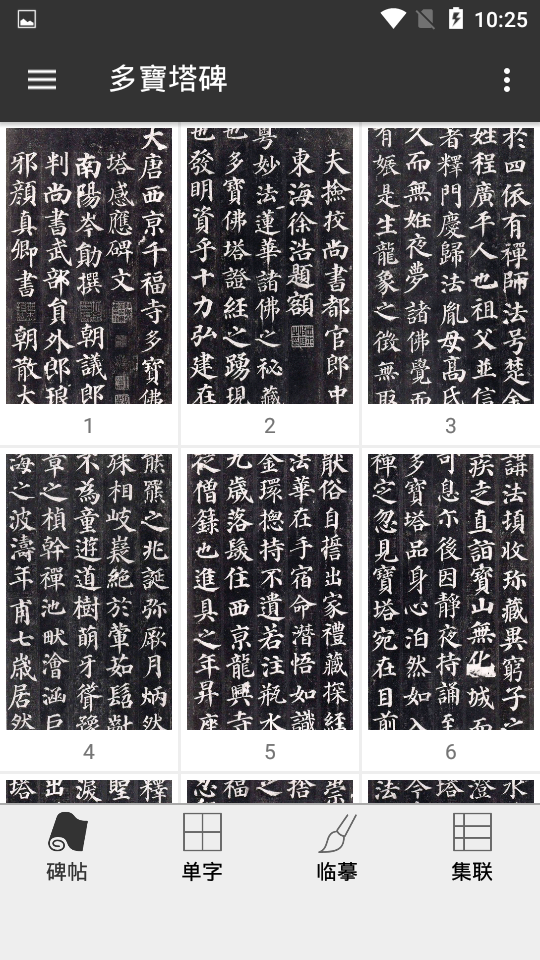 10:25
多寶塔碑
大唐西京千福寺多寶佛
塔感應碑文
南陽岑勛撰 朝議郎
判尚書武部員外郎琅
邪顏真卿書 朝散大
1
夫撿挍尚書都官郎中
東海徐浩題額
粤妙法蓮華諸佛之秘藏
也多寶佛塔證經之踴現
也發明資乎十力弘建在
2
於四依有禪師法号楚金
姓程廣平人也祖父並信
著釋門慶歸法胤母高氏
久而無姙夜夢諸佛覺而
有娠是生龍象之徵無取
3
熊羆之兆誕弥厥月炳然
殊相岐嶷絕於葷茹髫齔
不為童遊道樹萌牙聳豫
章之楨幹禪池畎澮涵巨
海之波濤年甫七歲居然
4
厭俗自誓出家禮藏探經
法華在手宿命潛悟如識
金環揔持不遺若注瓶水
九歲落髮住西京龍興寺
從僧籙也進具之年昇座
5
講法頓收珍藏異窮子之
疾走直詣寶山無化城而
可息尓後因靜夜持誦至
多寶塔品身心泊然如入
禪定忽見寶塔宛在目前
6
釋
聖
淚
出
塔
崇
捨
之
福
忍
水
澄
塔
今
法
碑帖
单字
临摹
集联